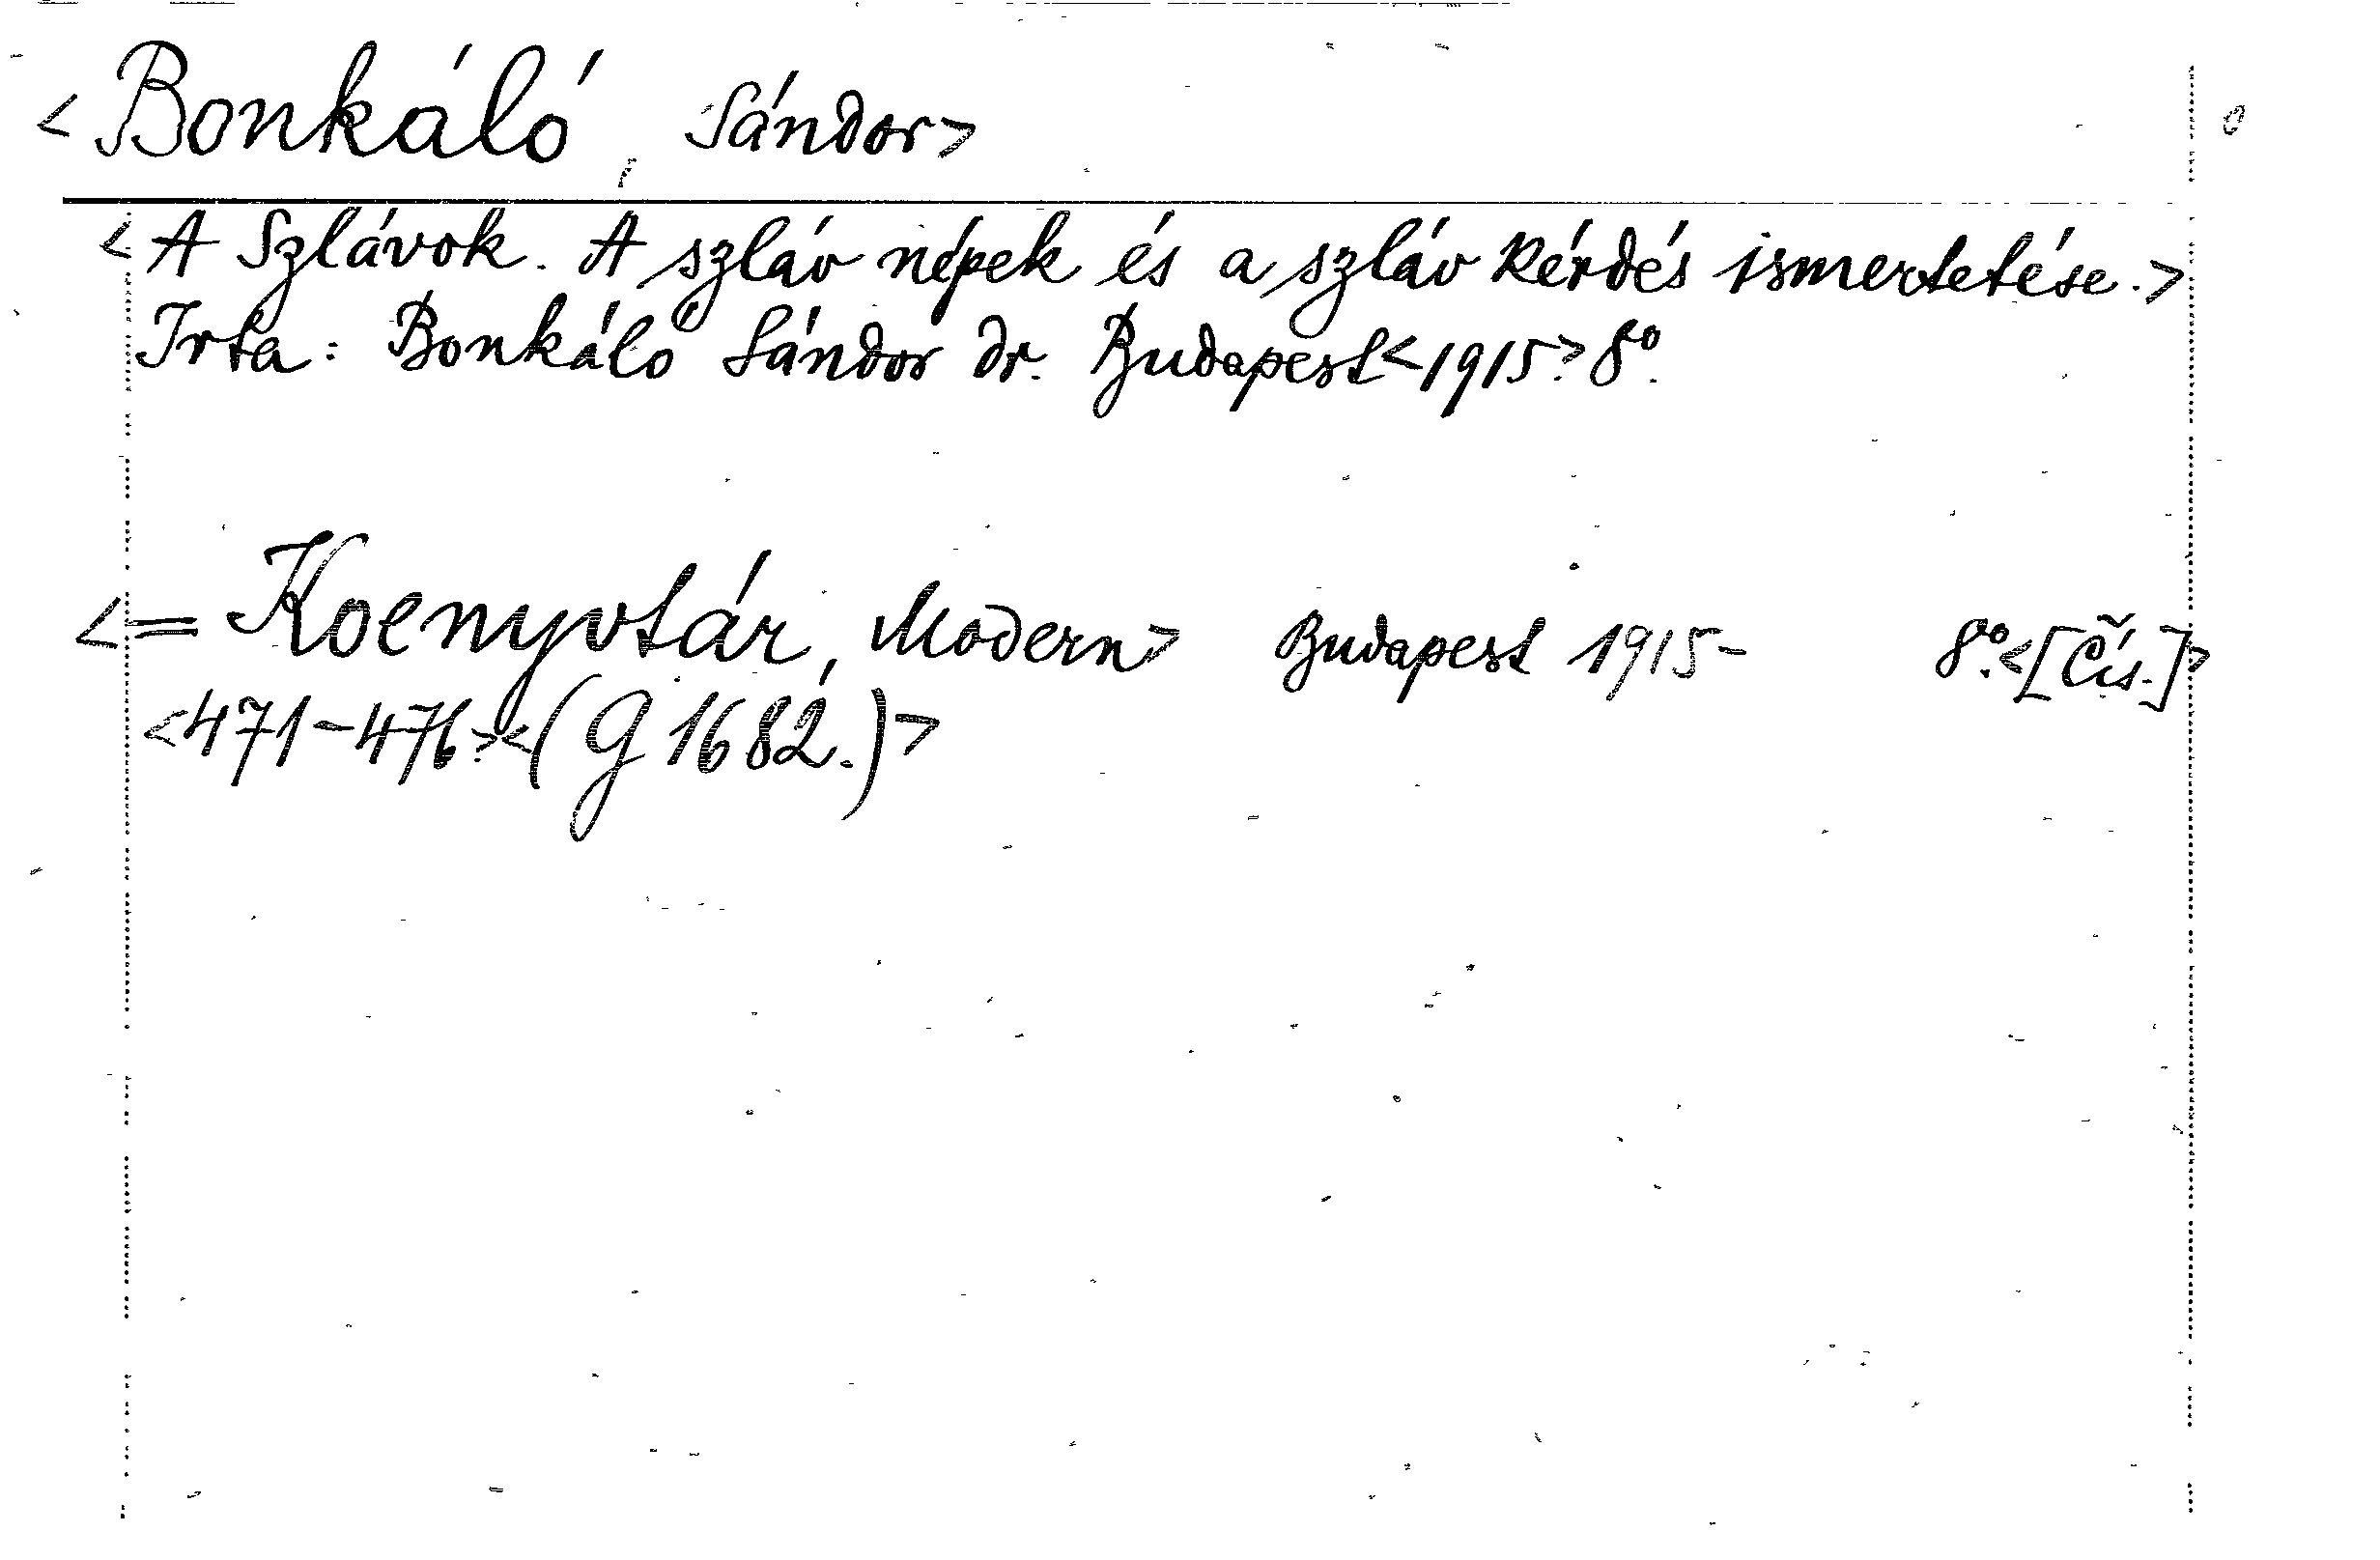 <Bonkáló, Sándor>
<A Szlávok. A szláv népek és a szláv kérdés ismertetése.>
Irta: Bonkáló Sándor dr. Budapest<1915>. 8°.
<=Koenyvtár, Modern> Budapest 1915- 8°.<[Čís.]>
<471-476.><(G 1682.)>